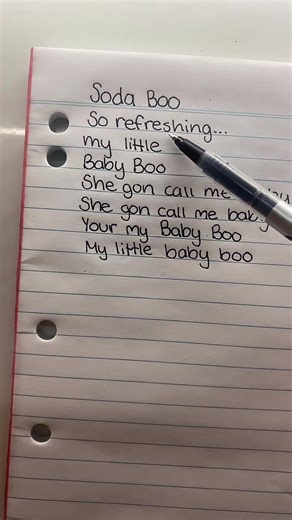 Soda Boo
So refreshing...
my little
Baby Boo
She gon call me
She gon call me baby
Your my Baby Boo
My little baby boo